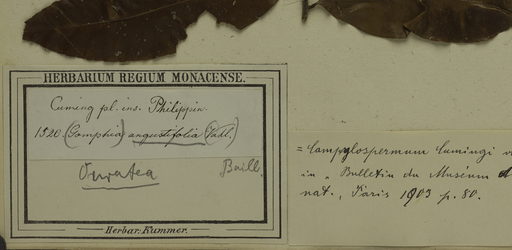 HERBARIUM REGIUM MONACENSE.
Cuming pl. ins. Philippin.
1520 (Gomphia) angustifolia (Vahl.)
Ouratea Baill.
Herbar. Kummer.
= Campylospermum Cumingi v
in „ Bulletin du Muséum d
nat., Paris 1903 p. 80.